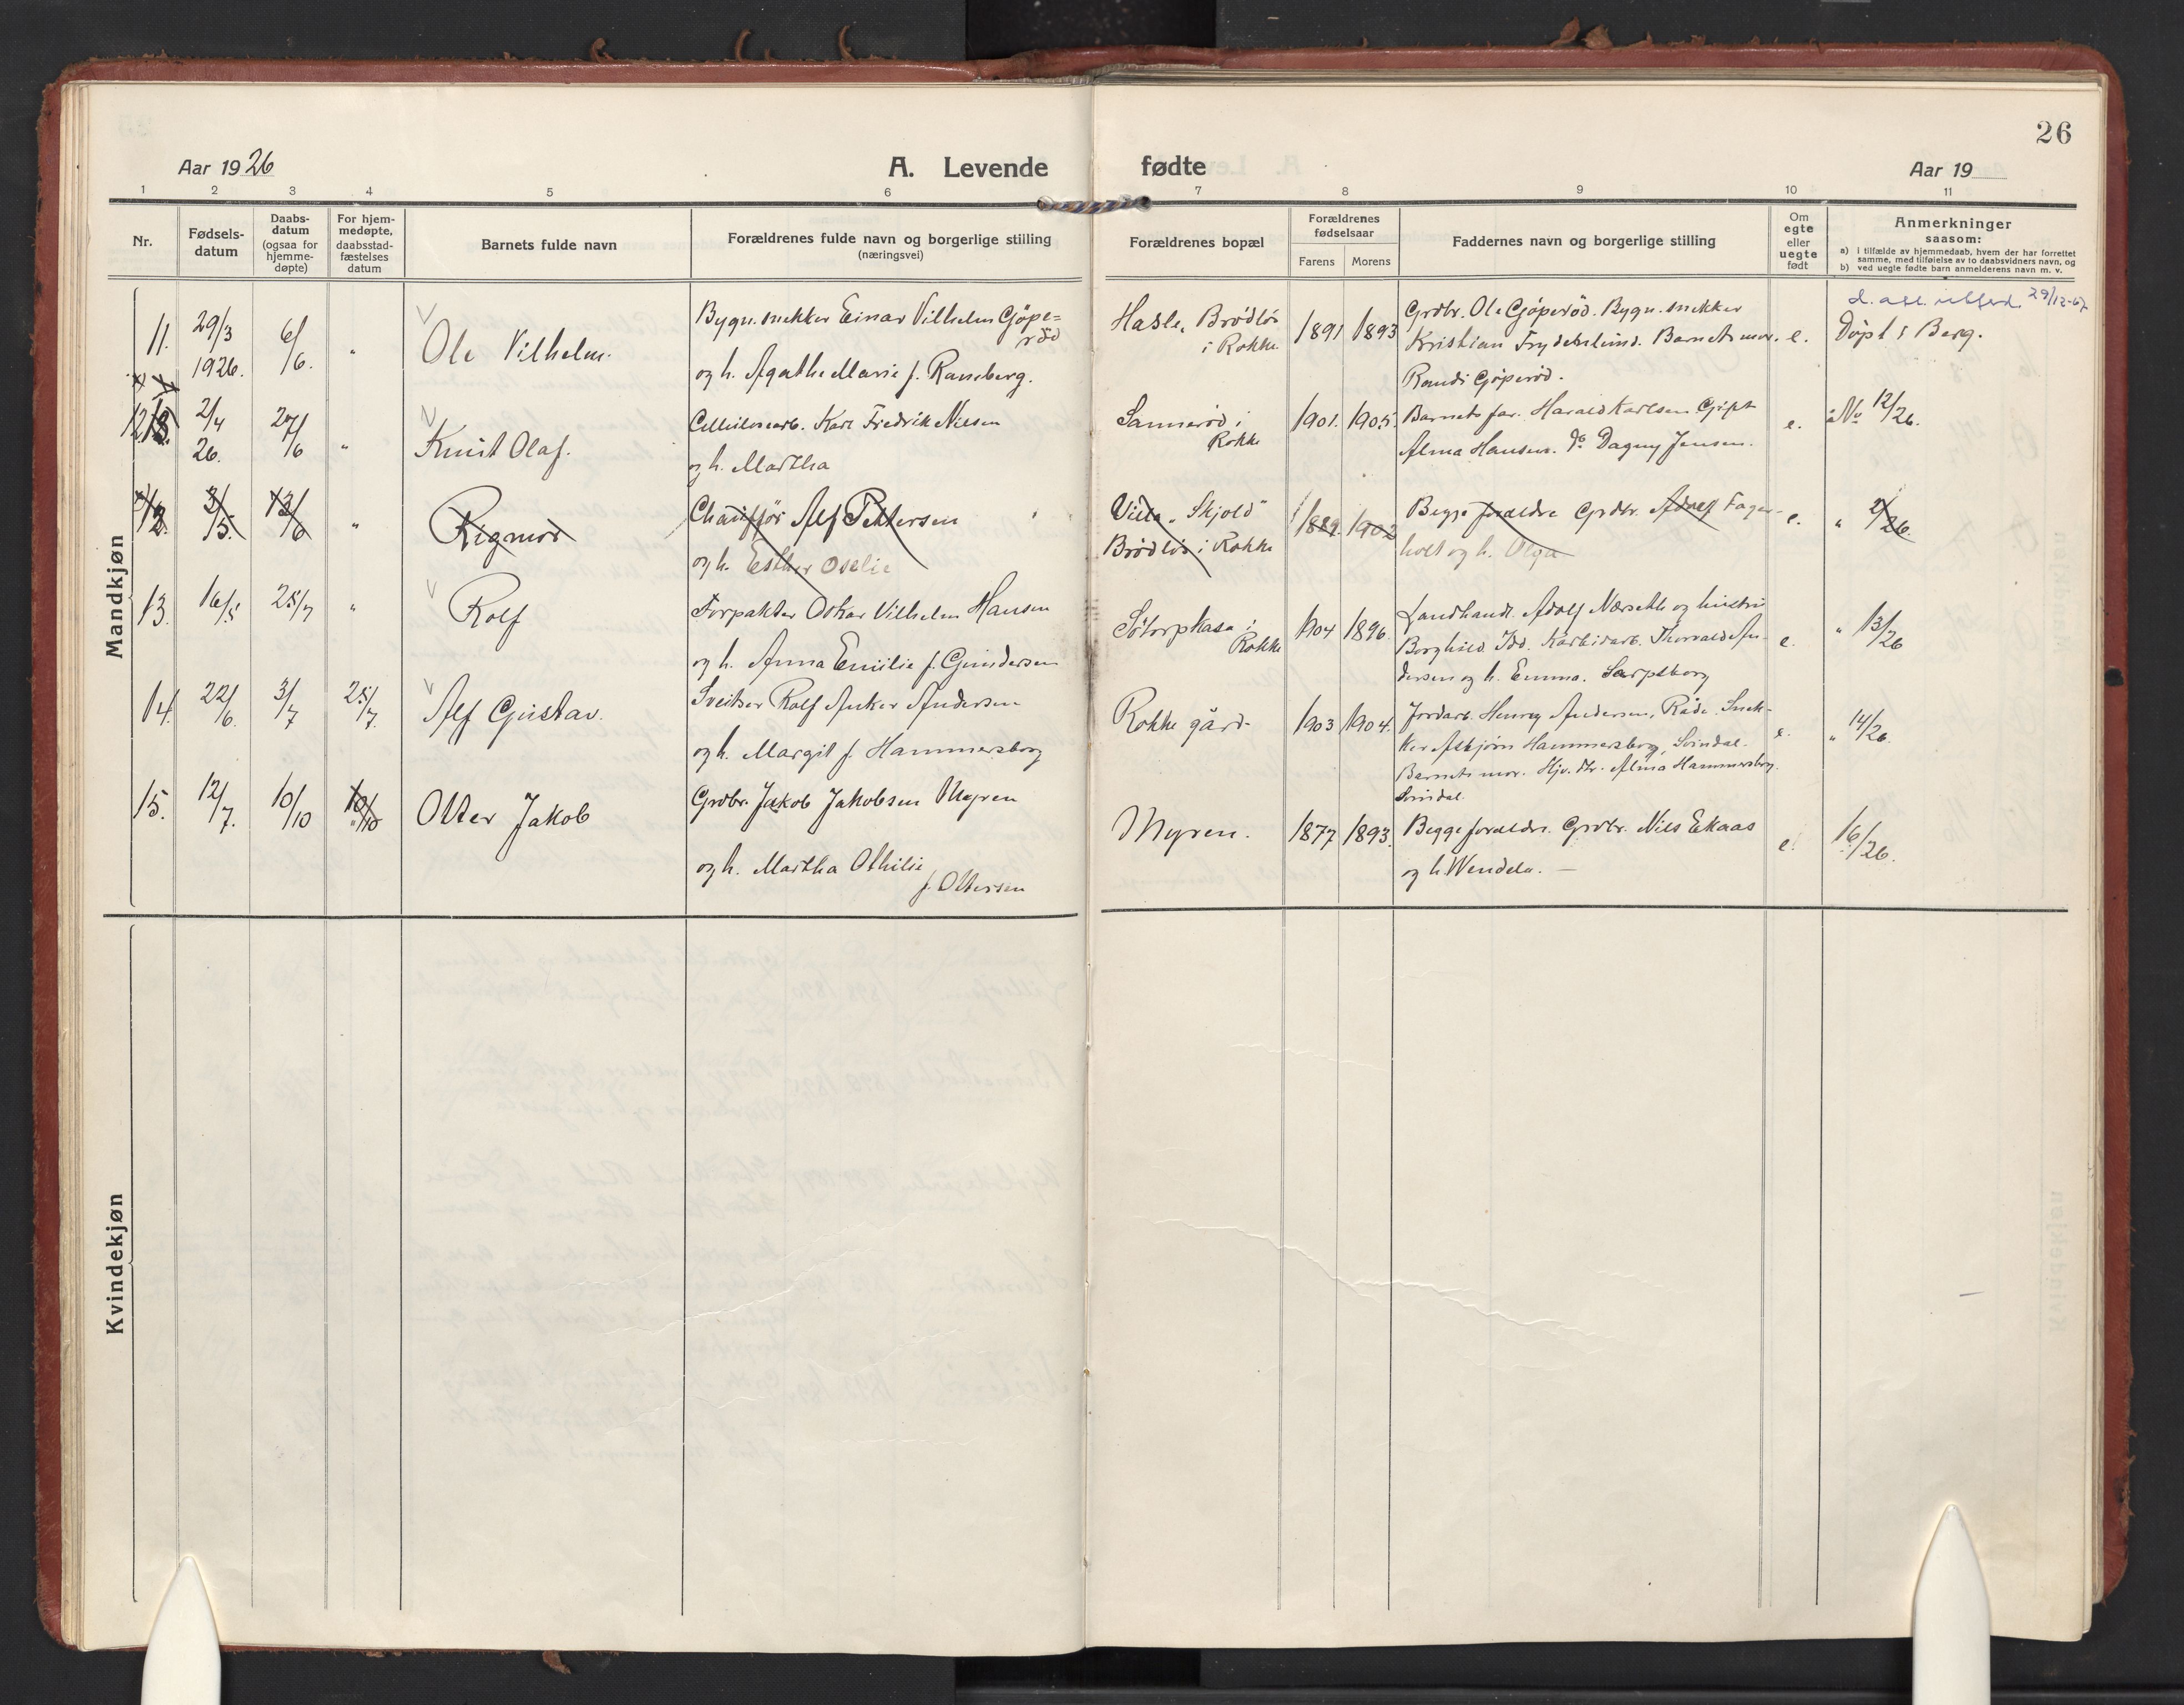 26
Aar 1926
A. Levende
fødte
Aar 19
1 2 3 4 5 6 7 8 9 10 11
Nr.
Fødsels-
datum
Daabs-
datum
(ogsaa for
hjemme-
døpte)
For hjem-
medøpte,
daabsstad-
fæstelses
datum
Barnets fulde navn
Forældrenes fulde navn og borgerlige stilling
(næringsvei)
Forældrenes bopæl
Forældrenes
fødselsaar
Farens Morens
Faddernes navn og borgerlige stilling
Om
egte
eller
uegte
født
Anmerkninger
saasom:
a) i tilfælde av hjemmedaab, hvem der har forrettet
samme, med tilføielse av to daabsvidners navn, og
b) ved uegte fødte barn anmelderens navn m. v.
Mandkjøn
11. 29/3 1926. 6/6. "
Ole Vilhelm.
Bygn. snekker Einar Vilhelm Gjøpe=
rød
og h. Agathe Marie f. Ramberg.
Hasle, Brødløs
i Rokke
1891 1893
Grdbr. Ole Gjøperød. Bygn. snekker
Kristian Frydenlund. Barnets mor.
Randi Gjøperød.
e.
29/12-67
Døpt i Berg.
12 2/4 26. 27/6 "
Knut Olaf.
Cellulosearb. Karl Fredrik Nilsen
og h. Martha
Sannerød i
Rokke
1901. 1905.
Barnets far. Harald Karlsen. Gift
Alma Hansen. do Dagny Jensen.
e.
No 12/26.
12. 2/5. 13/6 "
Rigmor
Chauffør Alf Pettersen
og h. Esther Oselie
Villa "Skjold"
Brødløs i Rokke
1889. 1902
Begge forældre Grdbr. Adolf Fager-
holt og h. Olga
e.
" 2/26.
13. 16/5 25/7 "
Rolf
Forpakter Oskar Vilhelm Hansen
og h. Anna Emilie f. Gundersen
Søtorpkasa i
Rokke
1904 1896.
Landhandl. Adolf Næsseth og hustru
Borghild Idd. Karbidarb. Thorvald An-
dersen og h. Emma. Sarpsborg
e.
" 13/26
14. 22/6. 3/7 25/7.
Alf Gustav.
Sveitser Rolf Anker Andersen
og h. Margit f. Hammersborg
Rokke gård
1903 1904.
Jordarb. Henry Andersen, Råde. Snek-
ker Asbjørn Hammersborg, Svindal.
Barnets mor. Hjv. dtr. Alma Hammersborg.
Svindal.
e.
" 14/26.
15. 12/7. 10/10 10/10
Otter Jakob
Grdbr. Jakob Jakobsen Myren
og h. Martha Othilie
f. Ottersen
Myren.
1877 1893.
Begge forældre. Grdbr. Nils Ekaas
og h. Wendela. —
e.
16/26.
Kvindekjøn